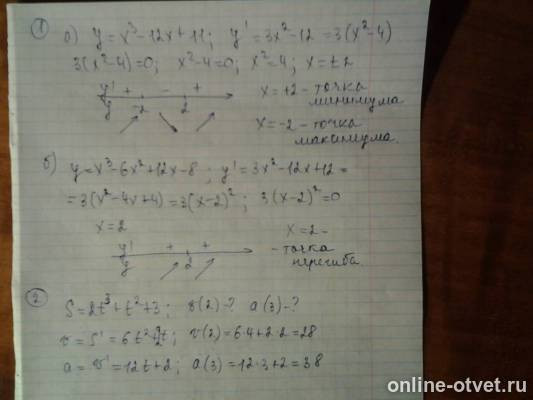 1
а) y = x³ - 12x + 11; y' = 3x² - 12 = 3(x² - 4)
3(x² - 4) = 0; x² - 4 = 0; x² = 4; x = ± 2
y' + - +
y -2 2
x = +2 - точка
минимума
x = -2 - точка
максимума.
б) y = x³ - 6x² + 12x - 8; y' = 3x² - 12x + 12 =
= 3(x² - 4x + 4) = 3(x - 2)²; 3(x - 2)² = 0
x = 2
y' + +
y 2
x = 2 -
- точка
перегиба.
2
S = 2t³ + t² + 3; v(2) - ? a(3) - ?
v = S' = 6t² + 2t; v(2) = 6·4 + 2·2 = 28
a = v' = 12t + 2; a(3) = 12·3 + 2 = 38
online-otvet.ru